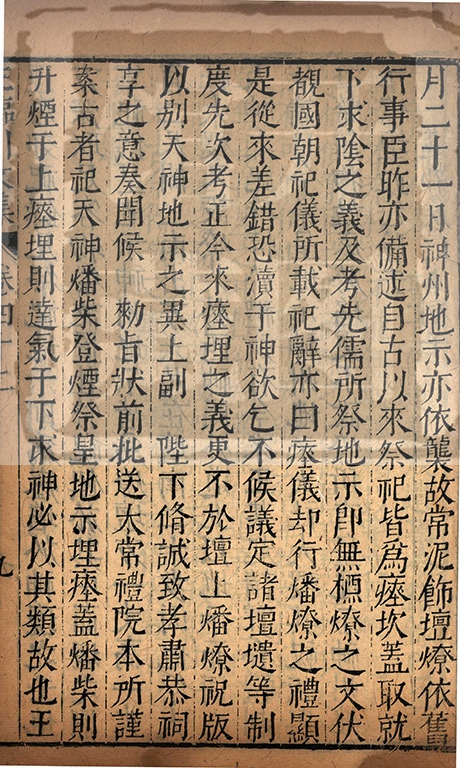 月二十一日神州地示亦依襲故常泥飾壇燎依舊
行事臣昨亦備述自古以來祭祀皆爲瘞坎蓋取就
下求陰之義及考先儒所祭地示卽無槱燎之文伏
覩國朝祀儀所載祀辭亦曰瘞儀却行燔燎之禮顯
是從來差錯恐瀆于神欲乞不候議定諸壇壝等制
度先次考正今來瘞埋之義更不於壇上燔燎祝版
以別天神地示之異上副 陛下脩誠致孝肅恭祠
享之意奏聞候 勑旨狀前批送太常禮院本所謹
案古者祀天神燔柴登煙祭皇地示埋瘞蓋燔柴則
升煙于上瘞埋則達氣于下求神必以其類故也王
王臨川文集 卷四十二 九